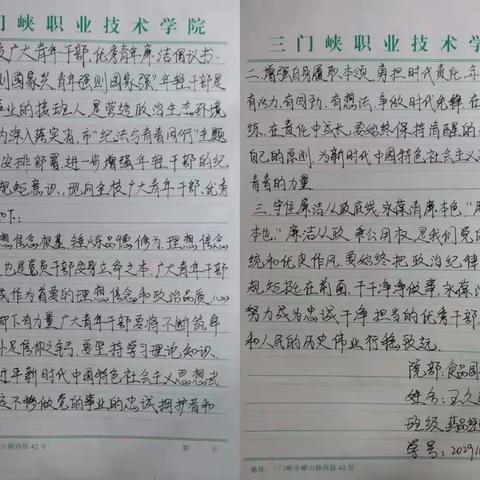 门峡职业技术学院
广大青年干部,优秀青年廉洁倡议书
则国家兴,青年强则国家强"年轻干部是
业的接班人,是营造政治生态环境
为深入落实省、市"纪法与青春同行"主题
安排部署进一步增强年轻干部的纪
规矩意识,现向全校广大青年干部、优秀
如下:
想信念根基,锤炼品德修为,理想信念
也是党员干部安身立命之本,广大青年干部
成作为首要的理想信念和政治品质,心
脚下有力量,广大青年干部要将不断筑牢
补足信仰之钙,要坚持学习理论知识、
近平新时代中国特色社会主义思想武
定不移做党的事业的忠诚拥护者和
山路西段42号
第 页
三门峡职业技术学
二、增强自身履职本领,勇担时代责任,
有活力、有闯劲、有想法,争做时代先锋,在
练,在责任中成长,要始终保持清醒的
自己的原则,为新时代中国特色社会主义
青春的力量
三、守住廉洁从政底线,永葆清廉本色,"
本色"廉洁从政 秉公用权,是我们党的
统和优良作风,要始终把政治纪律
规矩挺在前面,干干净净做事,永葆
努力成为忠诚干净担当的优秀干部,
和人民的历史伟业行稳致远。
院部:食品
姓名:王
班级:药品
学号:
地址:三门峡市崤山路西段42号